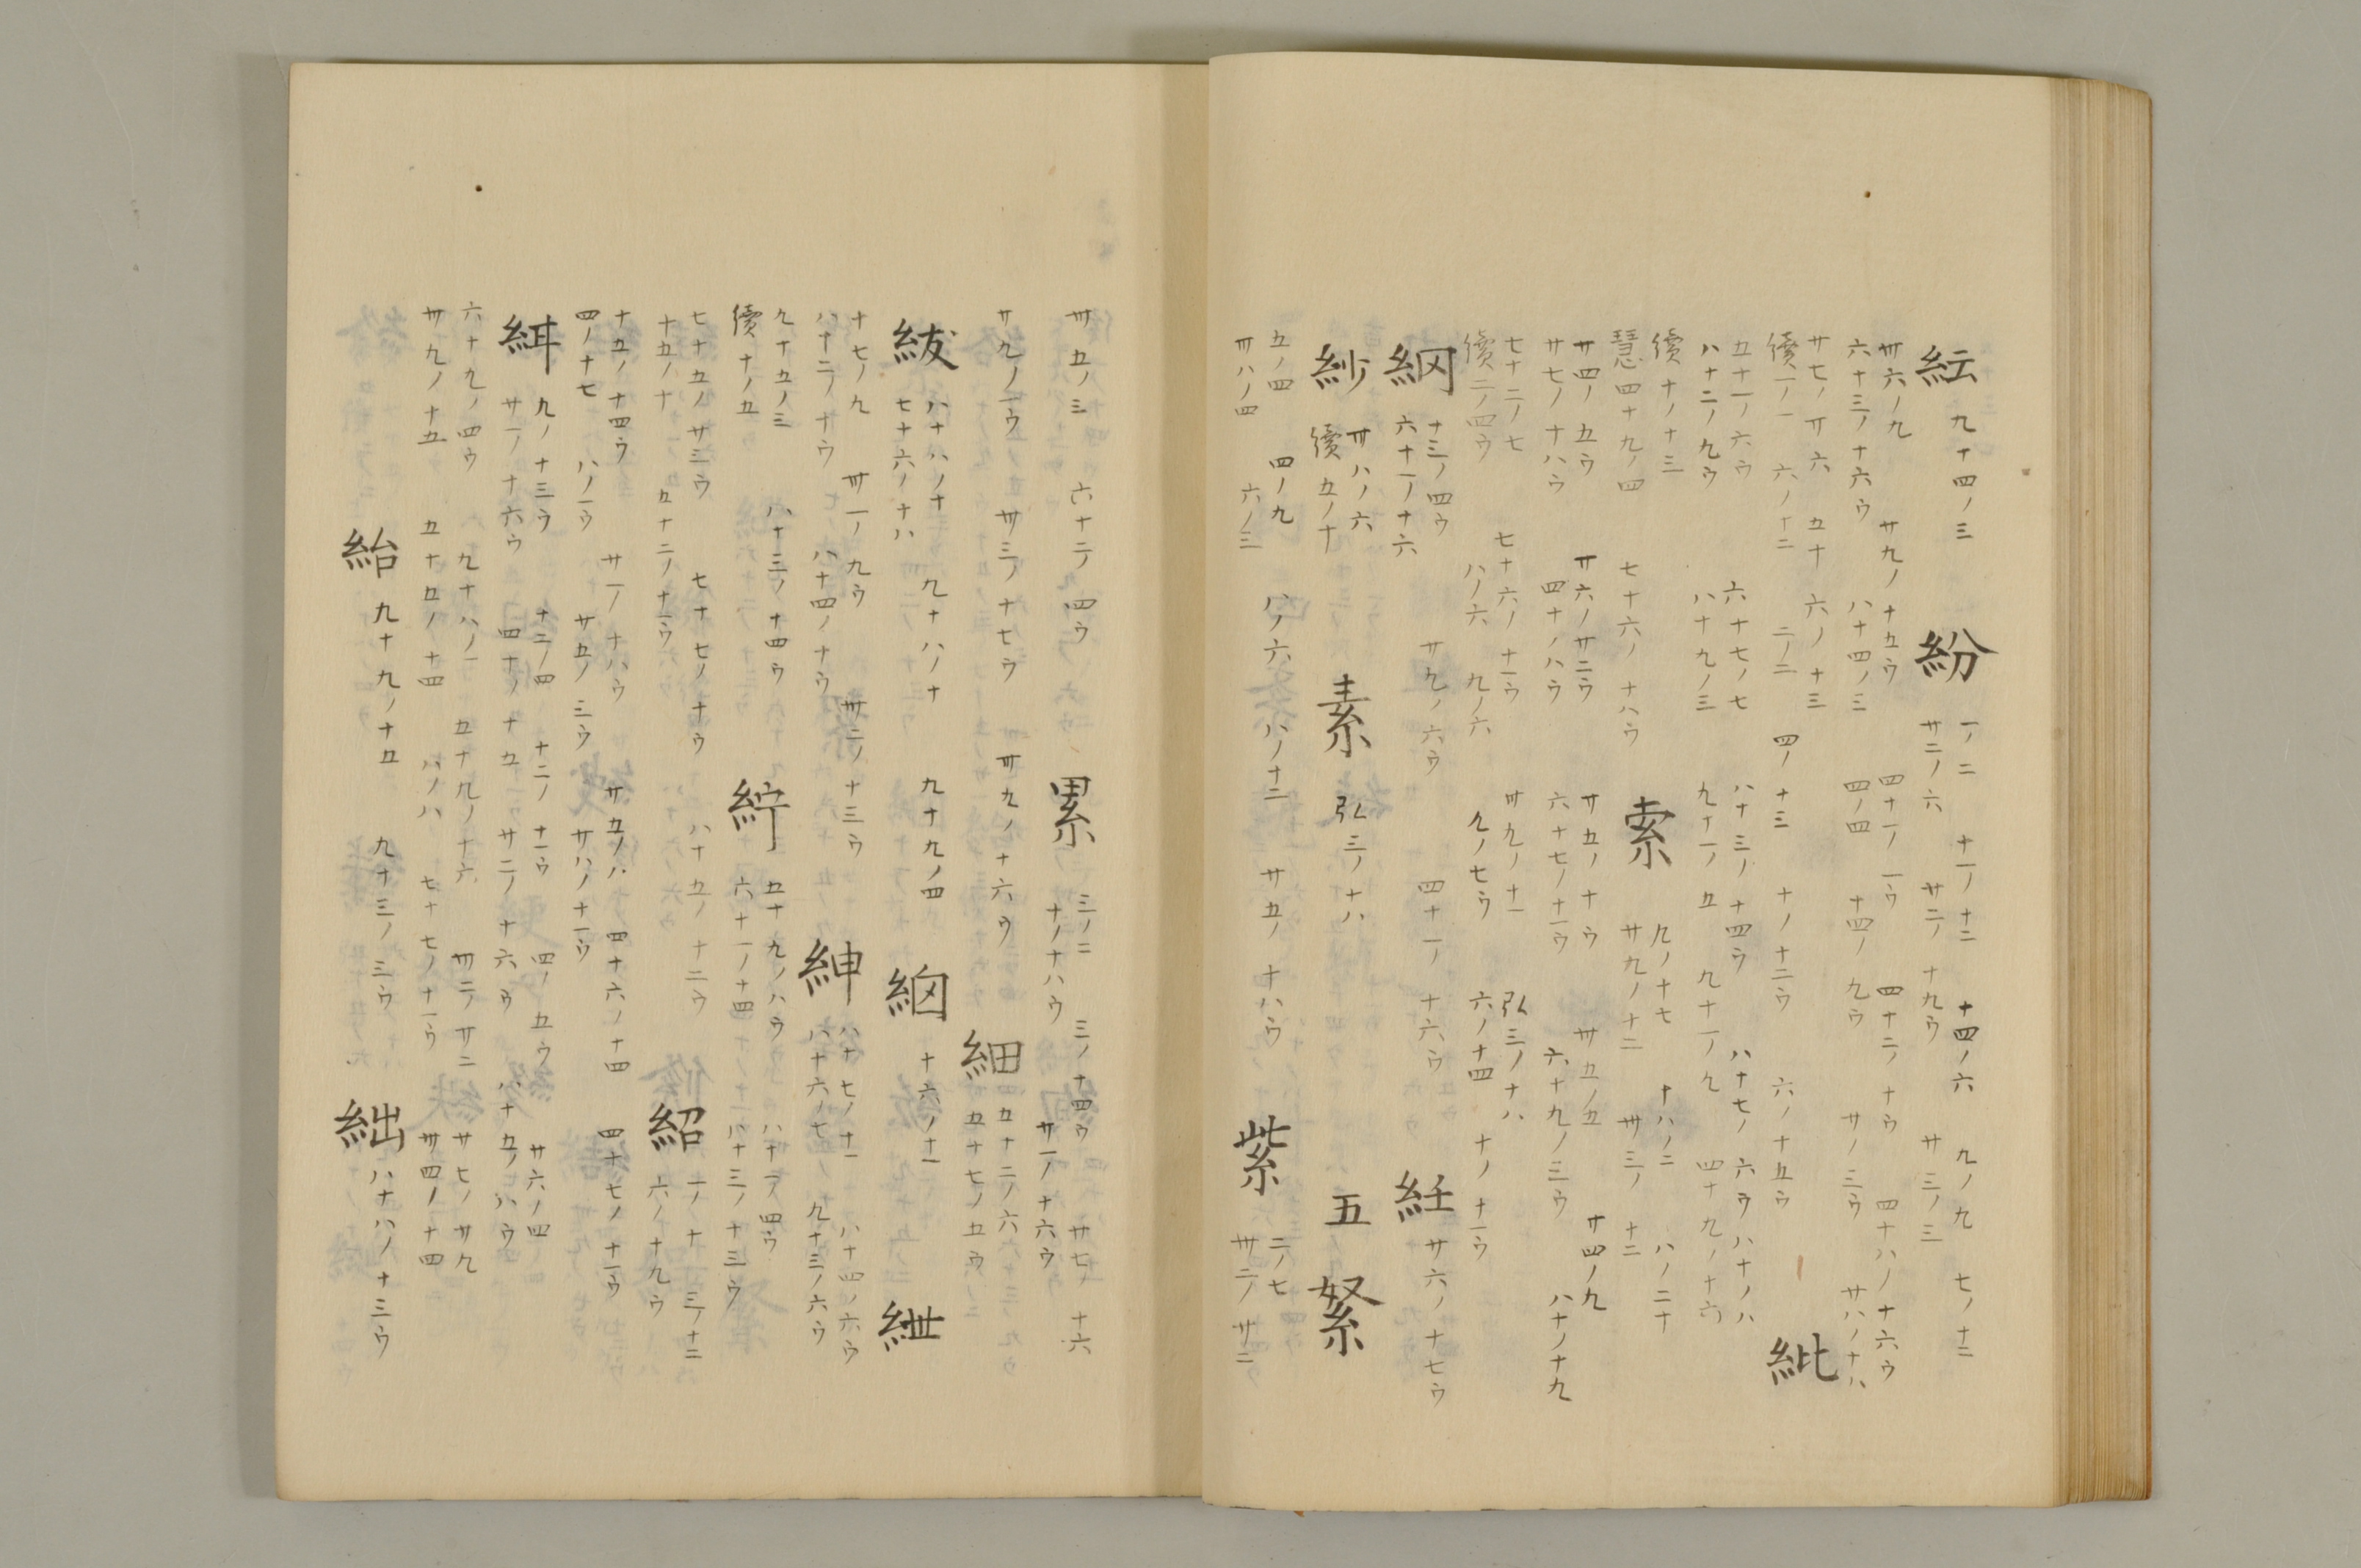 紜 九十四ノ三 紛 一ノ二 十一ノ十二 十四ノ六 九ノ九 七ノ十二
廿二ノ六 廿二ノ十九ウ 廿三ノ三
卅六ノ九 廿九ノ十五ウ 四十一ノ一ウ 四十二ノ十ウ 四十八ノ十六ウ
六十三ノ十六ウ 八十四ノ三 四ノ四 十四ノ九ウ 廿ノ三ウ 廿八ノ十八
廿七ノ廿六 五十六ノ十三 紕
續一ノ一 六ノ十二 二ノ二 四ノ十三 十ノ十二ウ 六ノ十五ウ
五十一ノ六ウ 六十七ノ七 八十三ノ十四ウ 八十七ノ六ウ 八十ノ八
八十二ノ九ウ 八十九ノ三 九十一ノ五 九十一ノ九 四十九ノ十六
續十ノ十三 索 九ノ十七 十八ノ二 八ノ二十
慧四十九ノ四 七十六ノ十八ウ 廿九ノ十二 卅三ノ十二
廿四ノ五ウ 廿六ノ廿二ウ 廿五ノ十ウ 卅五ノ五 廿四ノ九
廿七ノ十八ウ 四十ノ八ウ 六十七ノ十一ウ 六十九ノ三ウ 八十ノ十九
七十二ノ七 七十六ノ十一ウ 卅九ノ十一 弘三ノ十八
續二ノ四ウ 八ノ六 九ノ六 九ノ七ウ 六ノ十四 十ノ十一ウ
紉 十三ノ四ウ 廿九ノ六ウ 四十一ノ十六ウ 紝 廿六ノ十七ウ
六十一ノ十六
紗 卅八ノ六 素 弘三ノ十八 五 絮
續五ノ十
五ノ四 四ノ九 八ノ六 八ノ十二 廿五ノ十八ウ 紫 二ノ七
卅八ノ四 六ノ三 卅二ノ廿二
卅五ノ三 六十二ノ四ウ 累 三ノ二 三ノ十四ウ 廿七ノ十六
十ノ十八ウ 廿一ノ十六ウ
廿九ノ一ウ 卅三ノ十七ウ 卅九ノ十六ウ 細 五十二ノ六
五十七ノ五ウ
紱 八十八ノ十 九十八ノ十 九十九ノ四 絅 十六ノ十一 紲
七十六ノ十八
十七ノ九 卅一ノ九ウ 卅二ノ十三ウ 紳 八十七ノ十一 八十四ノ六ウ
八十二ノ十ウ 八十四ノ十ウ 八十六ノ七 九十三ノ六ウ
九十五ノ三 八十三ノ十四ウ 紵 五十九ノ八ウ 八十一ノ四ウ
續十ノ五 六十一ノ十四 八十三ノ十三ウ
七十五ノ廿三ウ 七十七ノ十ウ 八十五ノ十二ウ 紹 一ノ十一 三ノ十二
十五ノ十 五十二ノ十一ウ 六ノ十九ウ
十五ノ十四ウ 廿一ノ十八ウ 廿五ノ八 四十六ノ十四 四十七ノ十一ウ
四ノ十七 八ノ一ウ 廿五ノ三ウ 廿八ノ十一ウ
紺 九ノ十三ウ 十二ノ四 十二ノ十一ウ 四ノ五ウ 廿六ノ四
廿一ノ十六ウ 四十ノ十五 廿二ノ十六ウ 八十五ノ八ウ
六十九ノ四ウ 九十八ノ一 五十九ノ十六 卅二ノ廿二 廿七ノ廿九
卅九ノ十五 五十四ノ十四 八ノ八 七十七ノ十一ウ 卅四ノ十四
紿 九十九ノ十五 九十三ノ三ウ 絀 八十八ノ十三ウ